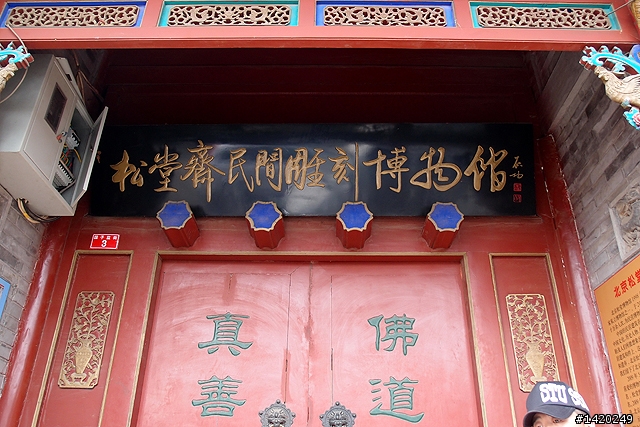 松堂齋民間雕刻博物舘
启功
国子监街
3
佛道
真善
北京松堂
#1420249